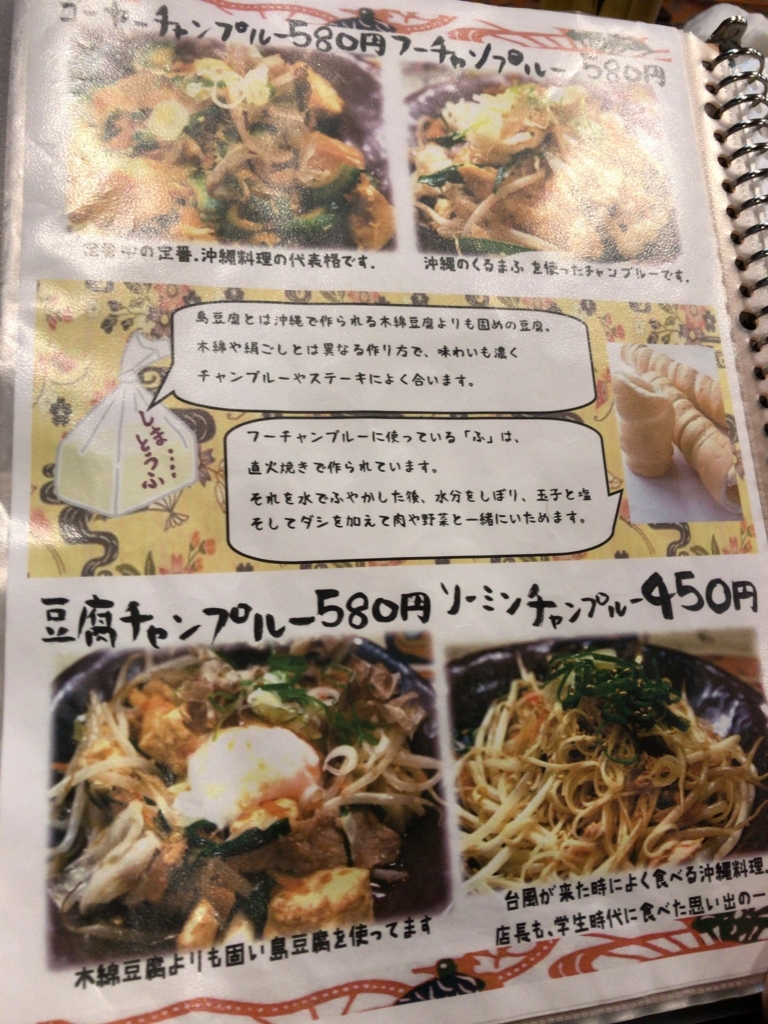 ゴーヤーチャンプルー580円
フーチャンプルー580円
定番中の定番、沖縄料理の代表格です。
沖縄のくるまふ を使ったチャンプルーです。
島豆腐とは沖縄で作られる木綿豆腐よりも固めの豆腐。
木綿や絹ごしとは異なる作り方で、味わいも濃く
チャンプルーやステーキによく合います。
しま....
とうふ
フーチャンプルーに使っている「ふ」は、
直火焼きで作られています。
それを水でふやかした後、水分をしぼり、玉子と塩
そしてダシを加えて肉や野菜と一緒にいためます。
豆腐チャンプルー580円
ソーミンチャンプルー450円
木綿豆腐よりも固い島豆腐を使ってます
台風が来た時によく食べる沖縄料理。
店長も、学生時代に食べた思い出の一